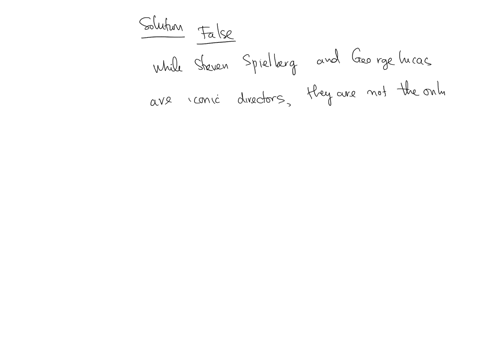 Solution False
while Steven Spielberg and George lucas
are iconic directors, they are not the only